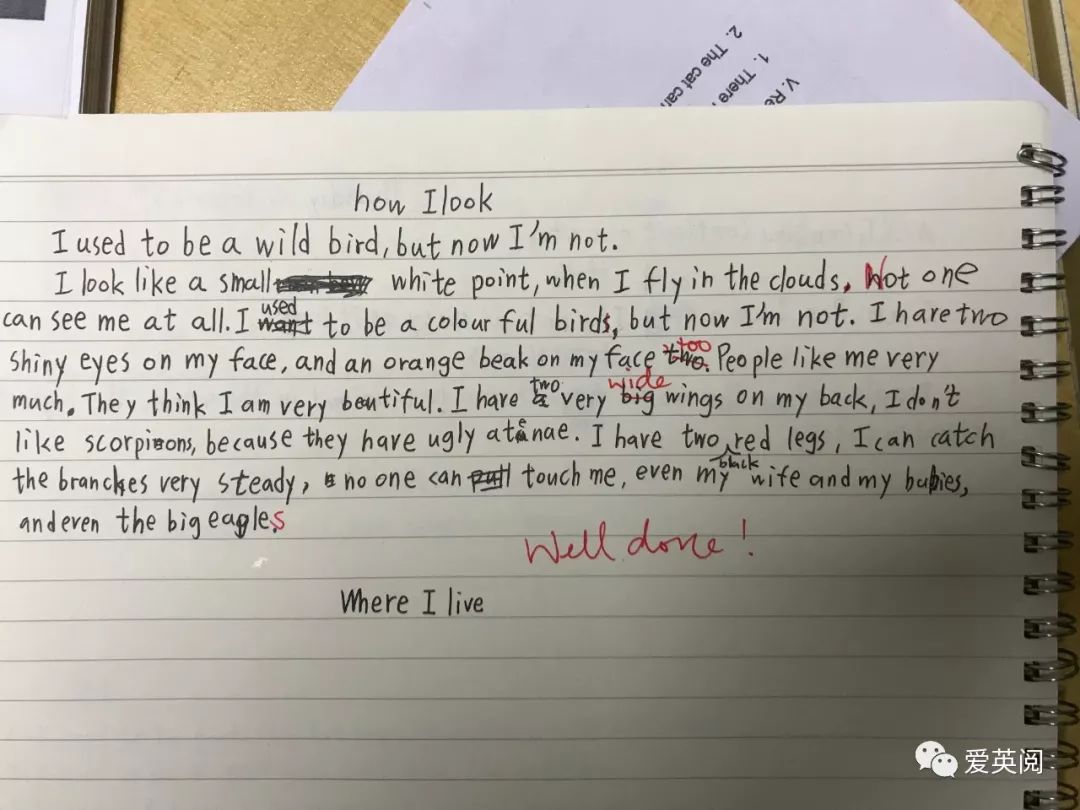 V. Re
1. There
2. The cat can
how I look
I used to be a wild bird, but now I'm not.
I look like a small white point, when I fly in the clouds. Not one
can see me at all. I used to be a colour ful birds, but now I'm not. I have two
shiny eyes on my face, and an orange beak on my face too. People like me very
much. They think I am very beutiful. I have two very wide wings on my back, I don't
like scorpions, because they have ugly atenae. I have two red legs, I can catch
the branches very steady, no one can touch me, even my black wife and my babies,
and even the big eagles
Well done!
Where I live
爱英阅